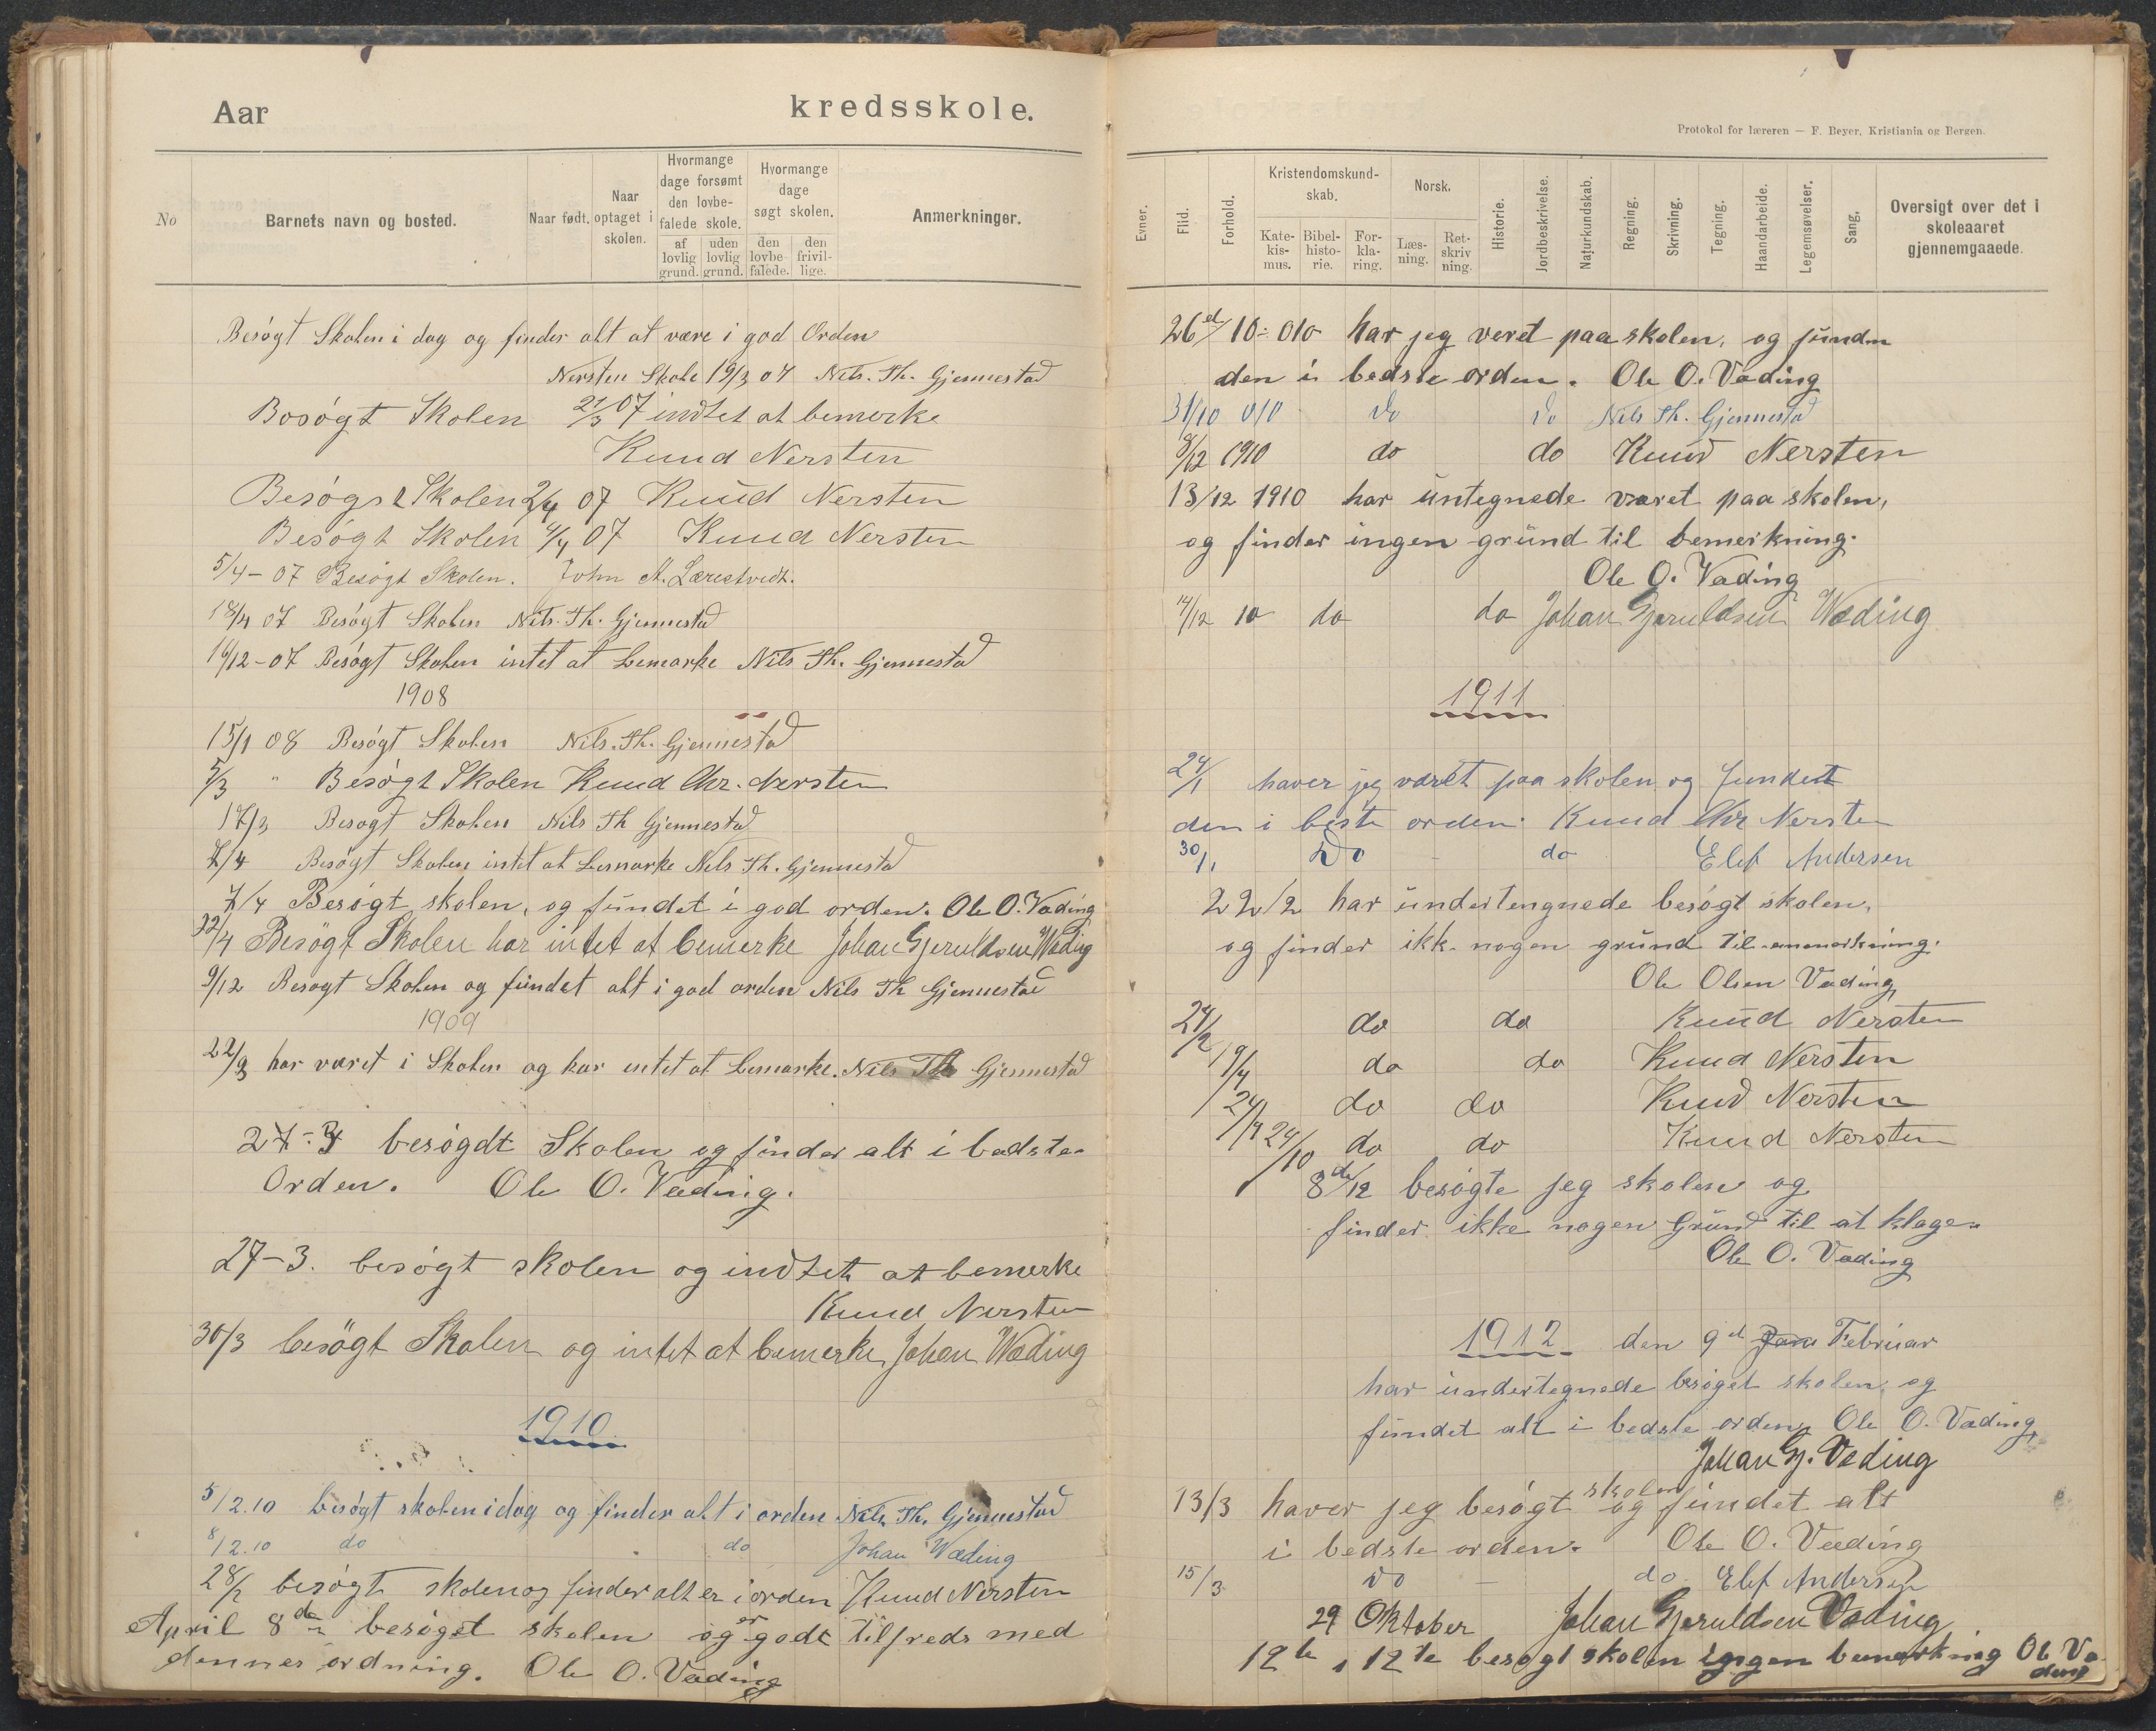 Aar kredsskole.
No
Barnets navn og bosted.
Naar født.
Naar optaget i skolen.
Hvormange dage forsømt den lovbefalede skole.
af lovlig grund.
uden lovlig grund.
Hvormange dage søgt skolen.
den lovbefalede.
den frivillige.
Anmerkninger.
Besøgt Skolen i dag og finder alt at være i god Orden
Nersten Skole 19/3 07 Nils. Th. Gjennestad
Bosögt Skolen 21/3 07 indtet at bemerke
Knud Nersten
Besögst Skolen 2/4 07 Knud Nersten
Besögt Skolen 4/4 07 Knud Nersten
5/4 - 07 Besögt Skolen. John A. Lærestvedt.
18/4 07 Besögt Skolen Nils. Th. Gjennestad
16/12 - 07 Besögt Skolen intet at bemarke Nils Th. Gjennestad
1908
15/1 08 Besögt Skolen Nils. Th. Gjennestad
5/3 " Besögt Skolen Knud Chr. Nersten
17/3 Besogt Skolen Nils Th Gjennestad
7/4 Besögt Skolen intet at bemarke Nils Th. Gjennestad
7/4 Besögt skolen, og fundet i god orden. Ole O. Væding
22/4 Besögt Skolen har intet at bemerke Johan Gjeruldsen Wæding
9/12 Besogt Skolen og fundet alt i god orden Nils Th Gjennestad
1909
22/3 har været i Skolen og har intet at bemarke. Nils Th Gjennestad
27-3 besögdt Skolen og finder alt i bedste
Orden. Ole O. Væding.
27-3. besögt skolen og indtet at bemerke
Knud Nersten
30/3 besögt Skolen og intet at bemerke Johan Wæding
1910
5/2.10 besögt skolen idag og finder alt i orden Nils Th. Gjennestad
8/2.10 do do Johan Wæding
28/2 besögt skolen og finder alt er i orden Knud Nersten
April 8de besöget skolen og er godt tilfreds med
dennes ordning. Ole O. Væding
Protokol for læreren — F. Beyer, Kristiania og Bergen.
Evner.
Flid.
Forhold.
Kristendomskundskab.
Katekismus.
Bibelhistorie.
Forklaring.
Norsk.
Læsning.
Retskrivning.
Historie.
Jordbeskrivelse.
Naturkundskab.
Regning.
Skrivning.
Tegning.
Haandarbeide.
Legemsøvelser.
Sang.
Oversigt over det i skoleaaret gjennemgaaede.
26d/10 - 010 har jeg veret paa skolen, og funden
den i bedste orden. Ole O. Væding
31/10 010 do do Nils Th. Gjennestad
8/12 1910 do do Knud Nersten
13/12 1910 har untegnede været paa skolen,
og finder ingen grund til bemerkning.
Ole O. Væding
14/12 10 do do Johan Gjeruldsen Wæding
1911
24/1 haver jeg været paa skolen og fundet
den i beste orden. Knud Chr Nersten
30/1 Do do Elef Andersen
22/2 har undertengnede besögt skolen,
og finder ikk nogen grund til anmerkning.
Ole Olsen Væding
24/2 do do Knud Nersten
19/4 do do Knud Nersten
24/9 do do Knud Nersten
24/10 do do Knud Nersten
8de/12 besögte jeg skolen og
finder ikke nogen Grund til at klage.
Ole O. Væding
1912 den 9d Jan Februar
har undertegnede besöget skolen og
fundet alt i bedste orden, Ole O. Væding,
Johan Gj. Væding
13/3 haver jeg besögt skolen og fundet alt
i bedste orden. Ole O. Væding
15/3 do do Elef Andersen
29 Oktober Johan Gjeruldsen Væding
12te i 12te besøgt skolen ingen bemerkning Ole Væding